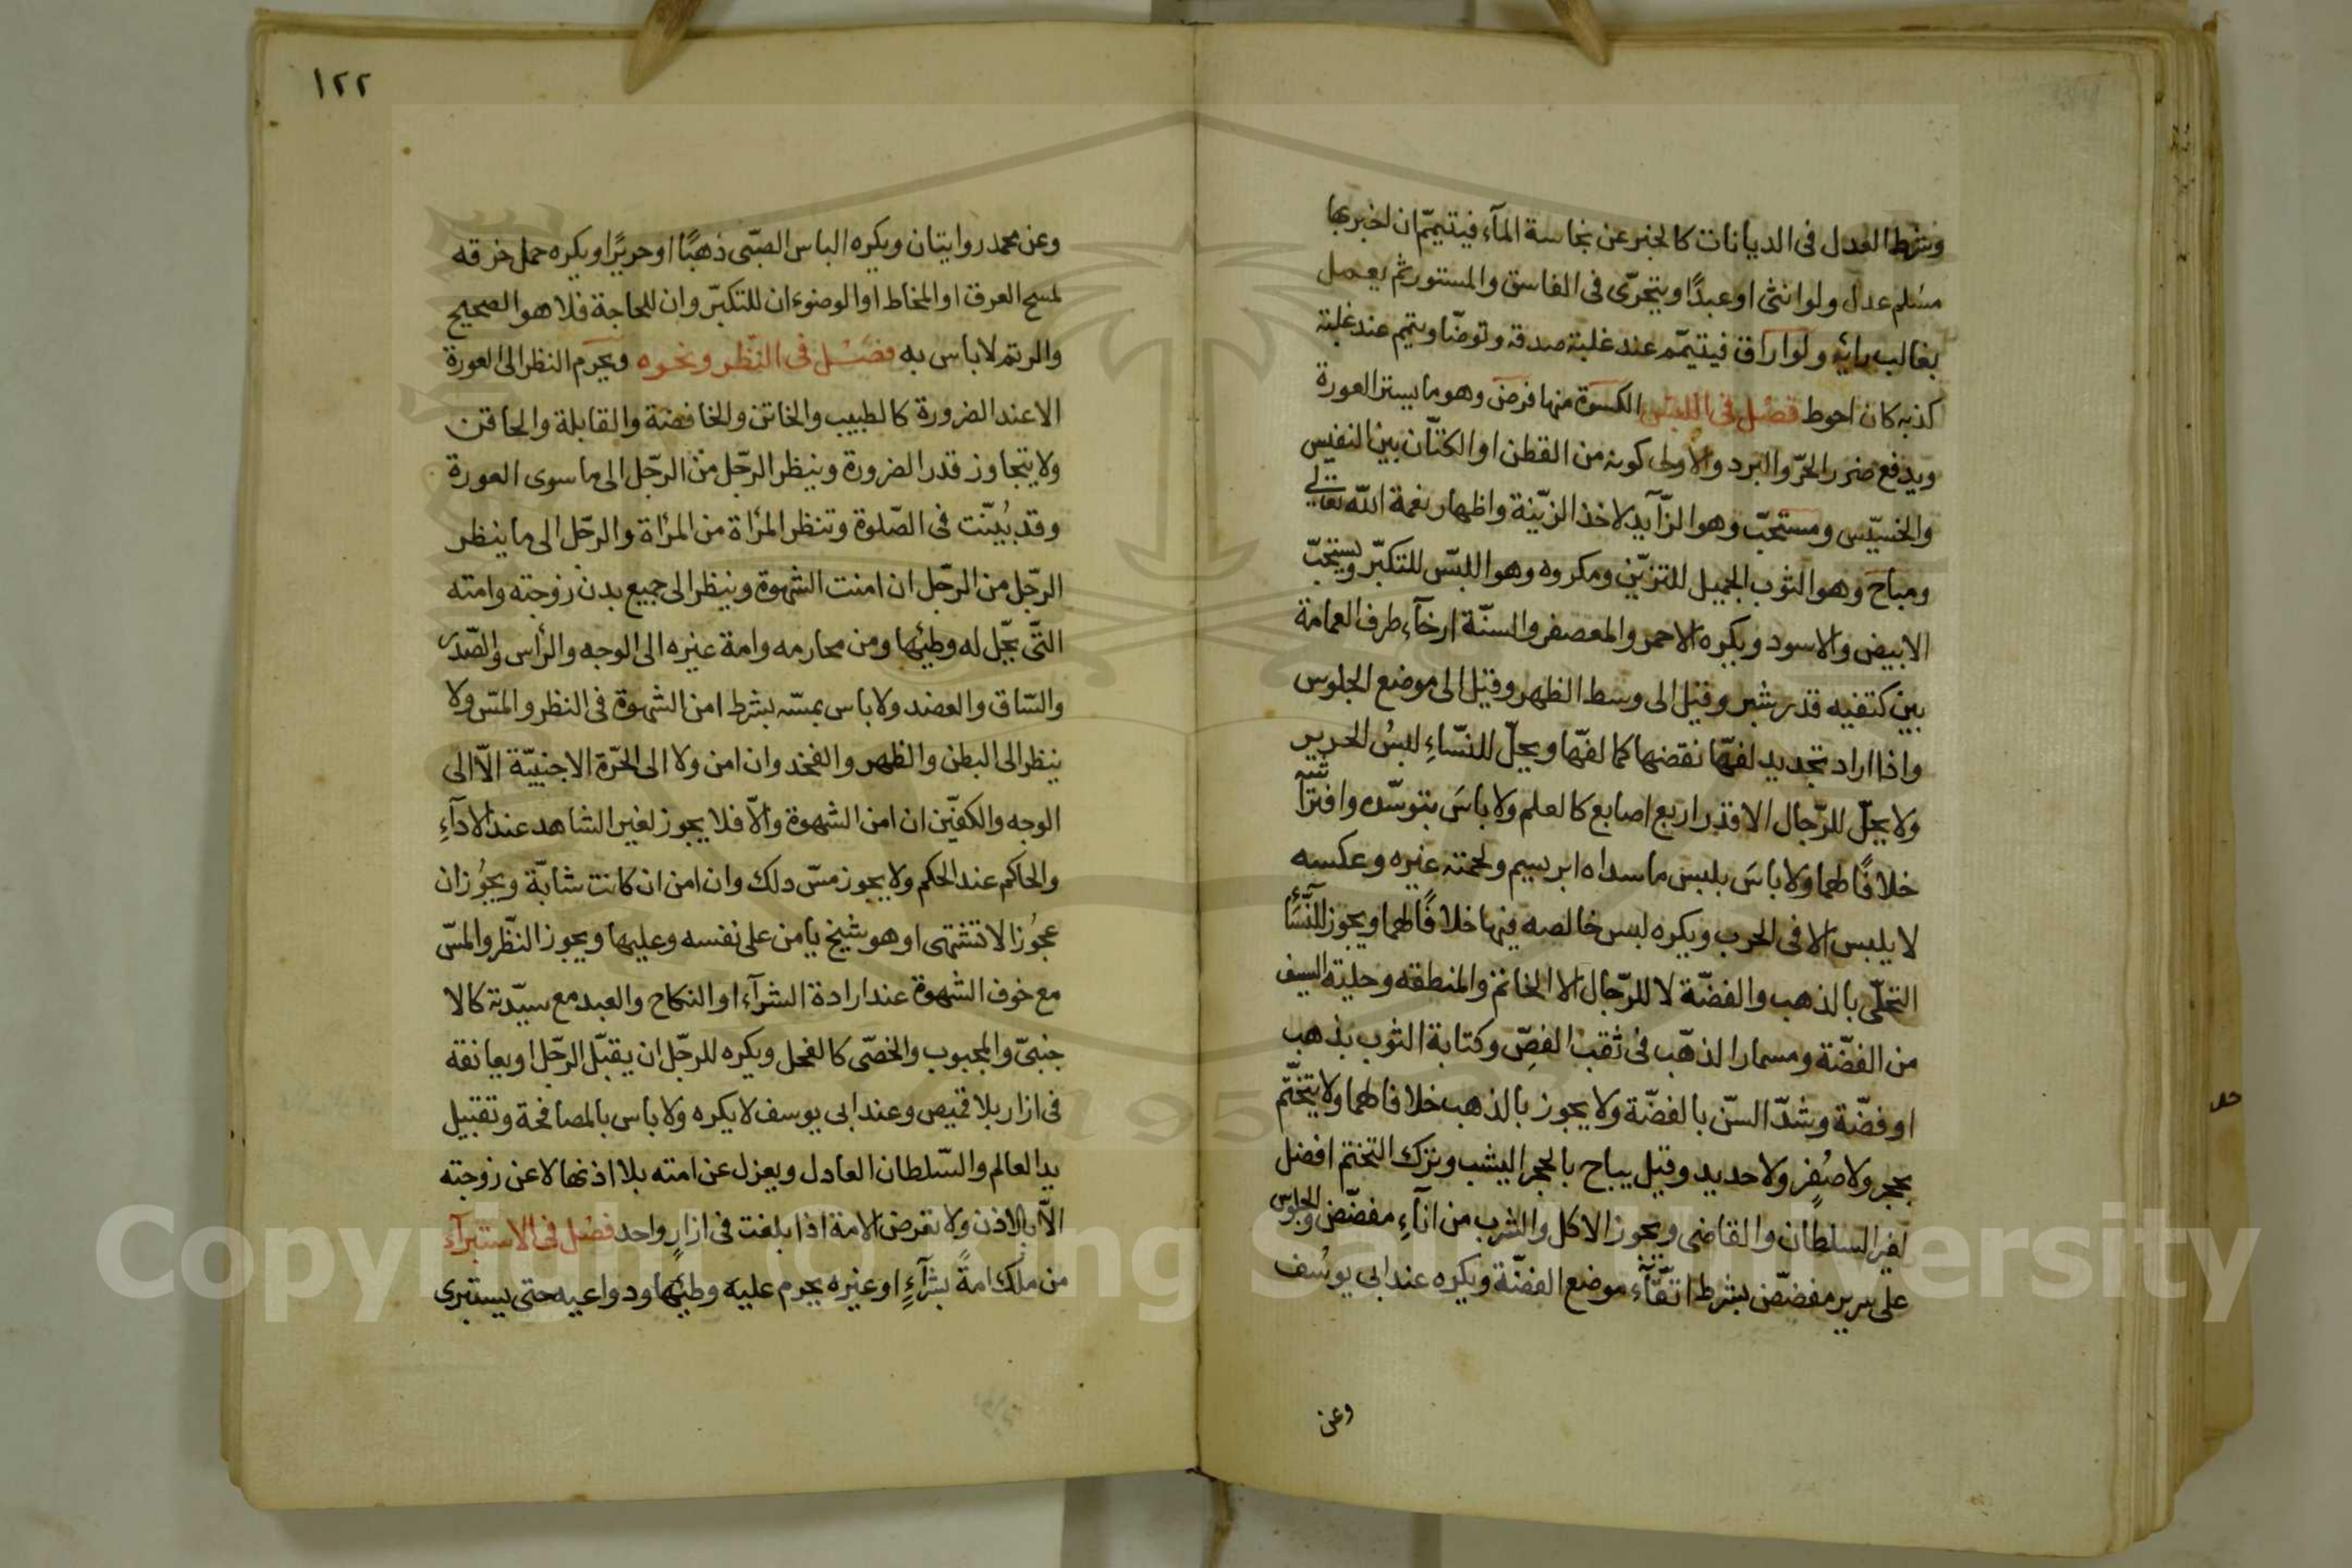 وشرط العدل فى الديانات كالخبر عن نجاسة المآء فيتيمّم ان اخبر بها
مسلم عدل ولو انثى او عبدًا ويتحرّى فى الفاسق والمستور ثم يعمل
بغالب رائه ولو اراق فيتيمّم عند غلبة صدقه وتوضّا ويتيم عند غلبة
كذبه كان احوط فصل فى اللبس الكسوة منها فرض وهو ما يستر العورة
ويدفع ضرر الحرّ والبرد والاولى كونه من القطن او الكتّان بين النفيس
والخسيّس ومستحبّ وهو الزّآيد لاخذ الزّينة واظهار نعمة الله تعالى
ومباح وهو الثوب الجميل للتزيّن ومكروه وهو اللبّس للتكبّر ويستحبّ
الابيض والاسود ويكره الاحمر والمعصفر والسنّة ارخآء طرف العمامة
بين كتفيه قدر شبر وقيل الى وسط الظهر وقيل الى موضع الجلوس
واذا اراد تجديد لفّها نقضها كما لفّها ويحلّ للنسّاءِ لبسُ الحرير
ولا يحلّ للرّجال الا قدر اربع اصابع كالعلم ولا باسَ بتوسّده وافترآشه
خلافًا لهما ولا باسَ بلبس ما سداه ابرسيم ولحمته غيره وعكسه
لا يلبس الا فى الحرب ويكره لبس خالصه فيها خلافًا لهما ويجوز للنّسَآء
التحلّى بالذهب والفضّة لا للرّجال الا الخاتم والمنطقه وحلية السيف
من الفضّة ومسمار الذهّب فى ثقب الفصّ وكتابة الثوب بذهب
او فضّة وشدّ السنّ بالفضّة ولا يجوز بالذهب خلافا لهما ولا يتختّم
بحجر ولا صُفرٍ ولا حديد وقيل يباح بالحجر اليشب وترك التختم افضل
لغير السلطان والقاضى ويجوز الاكل والشرب من انآءِ مفضّض والجلوس
على سرير مفضّض بشرط اتّقآء موضع الفضّة ويكره عند ابى يوسُف
وعن
١٢٢
وعن محمد روايتان ويكره الباس الصبّى ذهبًا او حريرًا ويكره حمل خرقه
لمسح العرق او المخاط او الوضوء ان للتكبّر وان للحاجة فلا هو الصحيح
والرتم لا باس به فصل فى النّظر ونحوه ويحرم النظر الى العورة
الا عند الضرورة كالطبيب والخاتن والخافضة والقابلة والحاقن
ولا يتجاوز قدر الضرورة وينظر الرجّل من الرجّل الى ما سوى العورة
وقد بُيّنت فى الصّلوة وتنظر المرأة من المرأة والرجّل الى ما ينظر
الرجّل من الرجّل ان امنت الشهوة وينظر الى جميع بدن زوجته وامته
التّى يحلّ له وطيئها ومن محارمه وامة غيره الى الوجه والرأس والصّدر
والسّاق والعضد ولا باس بمسّه بشرط امن الشهوة فى النظر والمسّ ولا
ينظر الى البطن والظهر والفخذ وان امن ولا الى الحرّة الاجنبيّة الّا الى
الوجه والكفيّن ان امن الشهوة والّا فلا يجوز لغير الشاهد عند الادآءِ
والحاكم عند الحكم ولا يجوز مسّ دلك وان امن ان كانت شابّة ويجوُز ان
عجوُزا لا تشتهى او هو شيخ يامن على نفسه وعليها ويجوز النّظر والمسّ
مع خوف الشهوة عند ارادة الشرآء او النكاح والعبد مع سيّدته كالا
جنبىّ والمجبوب والخصّى كالفحل ويكره للرجّل ان يقبّل الرجّل او يعانقه
فى ازار بلا قميص وعند ابى يوسف لا يكره ولا باس بالمصافحة وتقبيل
يد العالم والسّلطان العادل ويعزل عن امته بلا اذنها لا عن زوجته
الّا بالاذن ولا تعرض الامة اذا بلغت فى ازارٍ واحد فصل فى الاستبرآء
من ملك امةً بشرآءٍ او غيره يحرم عليه وطيئها ودواعيه حتى يستبرى
Copyright © King Saud University